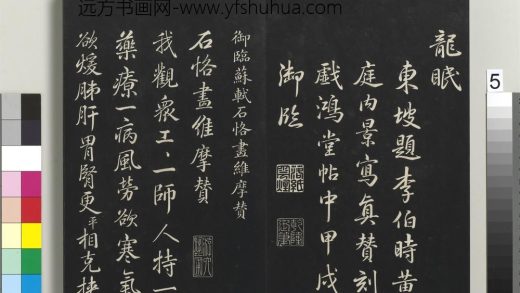 远方书画网-www.yfshuhua.com
5
龍眠
東坡題李伯時黃
庭內景寫真贊刻
戲鴻堂帖中甲戌
御臨
御臨蘇軾石恪畫維摩贊
石恪畫維摩贊
我觀眾工工一師人持一
藥療一病風勞欲寒氣
欲煖肺肝胃腎更平相克挾